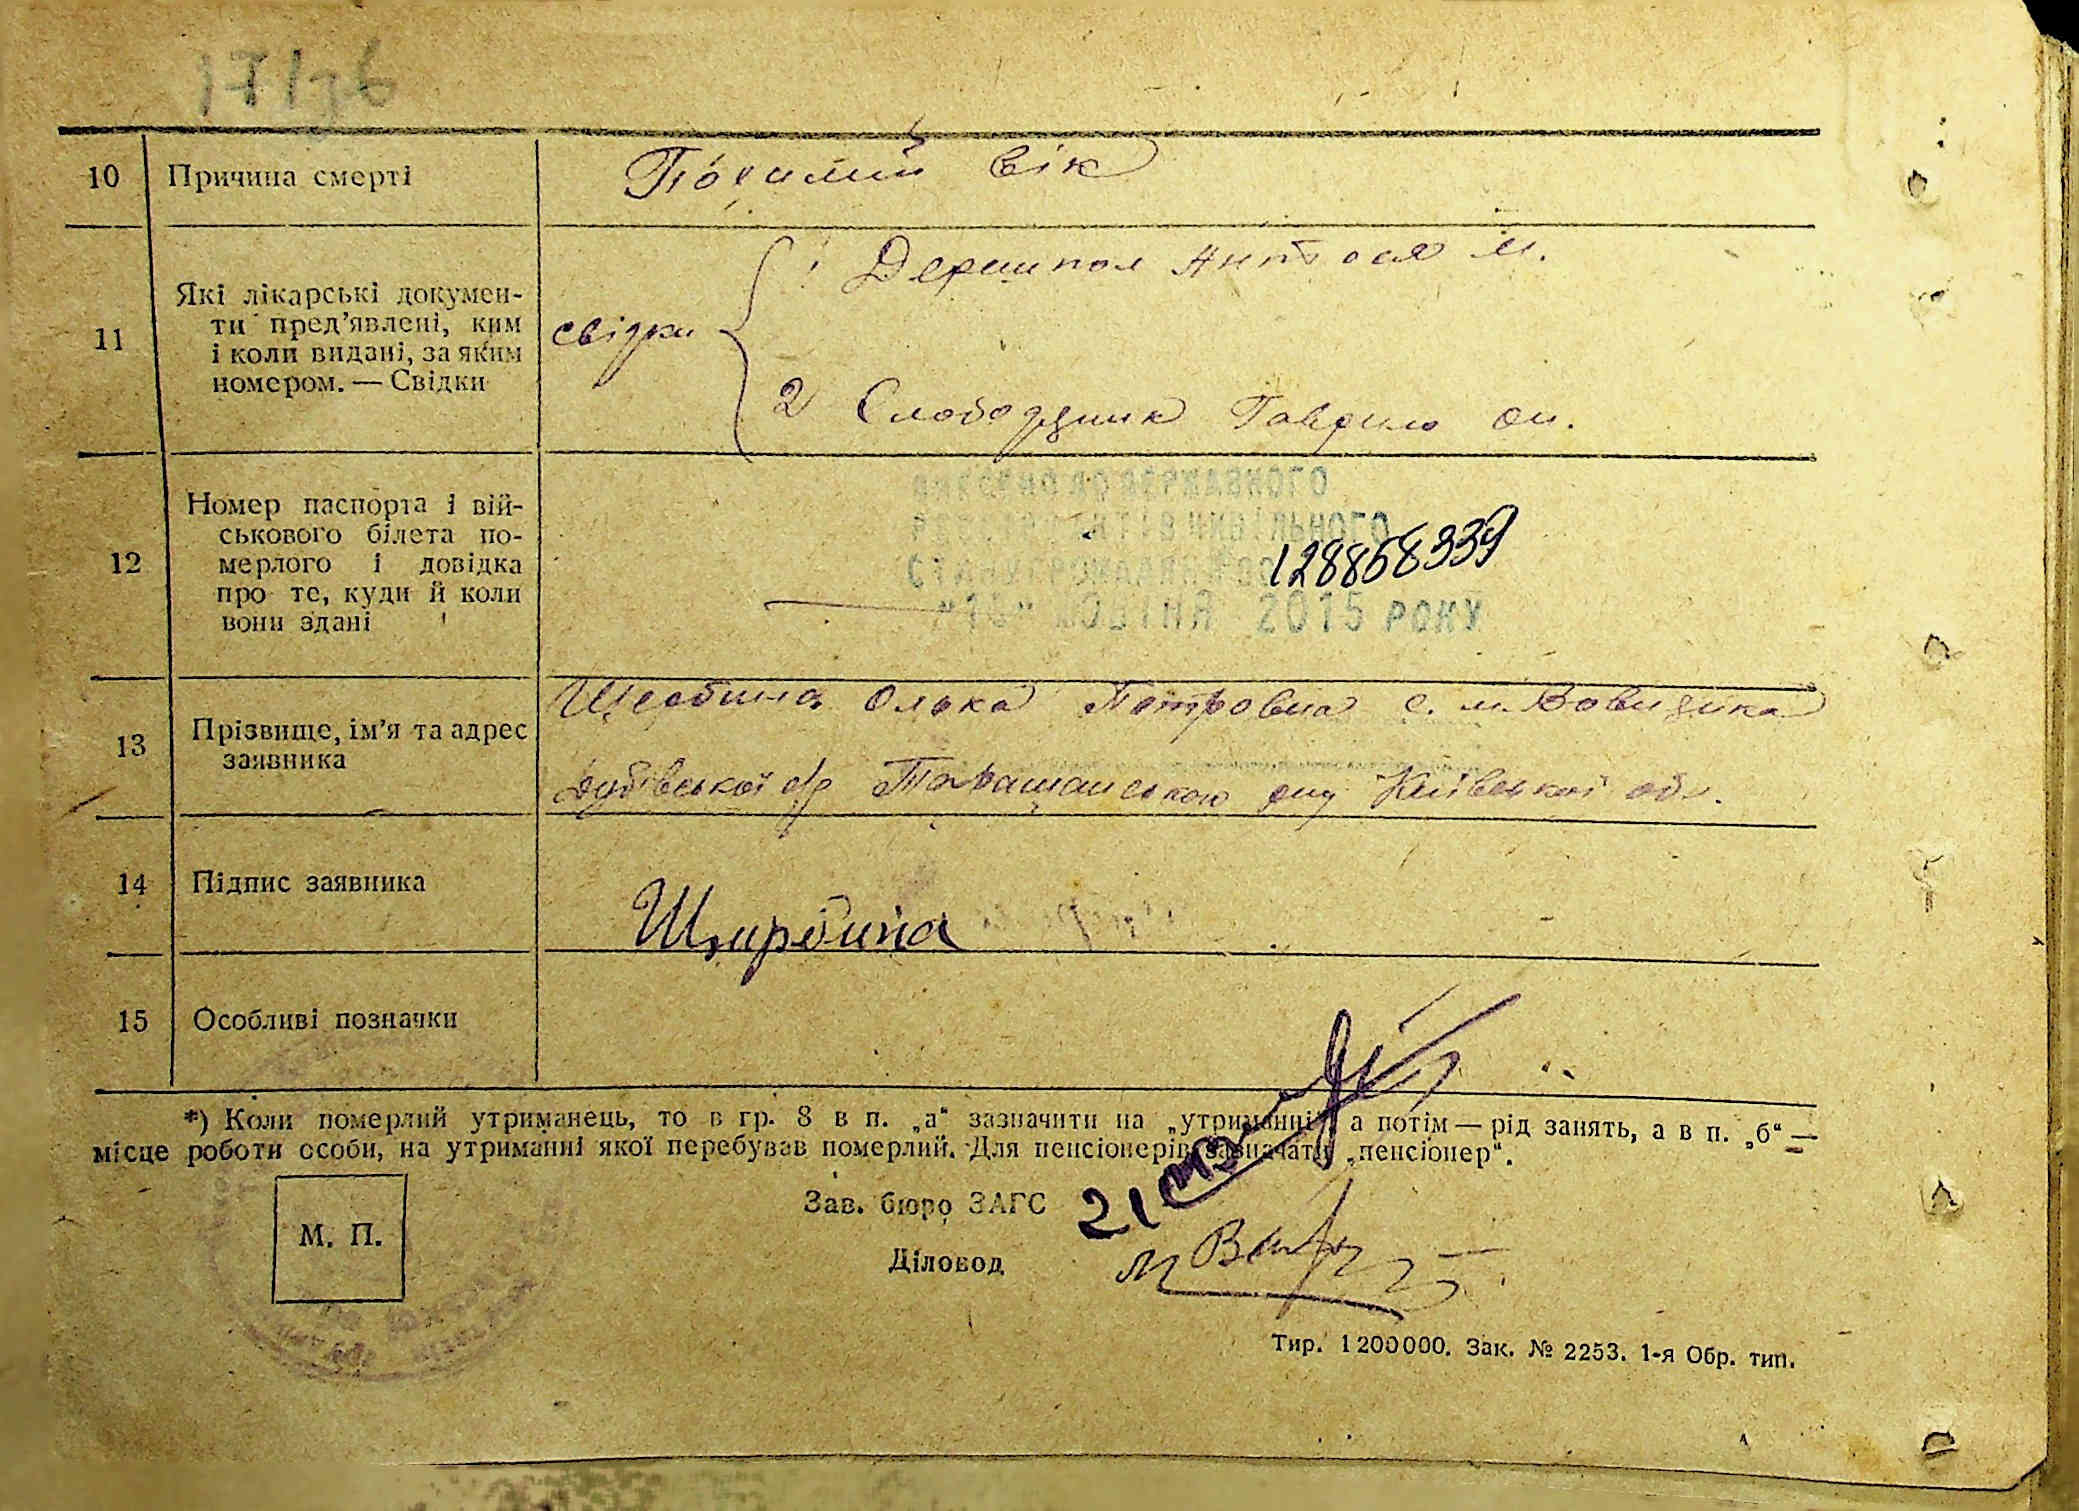 17176
10 Причина смерті Похилий вік
11 Які лікарські докумен-
ти пред'явлені, ким
і коли видані, за яким
номером. — Свідки
свідки
1 Антося М.
2 Слободяник Гаврило
12 Номер паспорта і вій-
ськового білета по-
мерлого і довідка
про те, куди й коли
вони здані
128868339
2015 РОКУ
13 Прізвище, ім'я та адрес
заявника
Щербина Олька Петровна с. м. Вовнянка
Дубівської с/р Таращанського р-ну Київської обл.
14 Підпис заявника
Щирбина
15 Особливі позначки
*) Коли померлий утриманець, то в гр. 8 в п. „а“ зазначити на „утриманні“ а потім — рід занять, а в п. „б“ —
місце роботи особи, на утриманні якої перебував померлий. Для пенсіонерів зазначати „пенсіонер“.
М. П.
Зав. бюро ЗАГС
Діловод
Тир. 1200000. Зак. № 2253. 1-я Обр. тип.